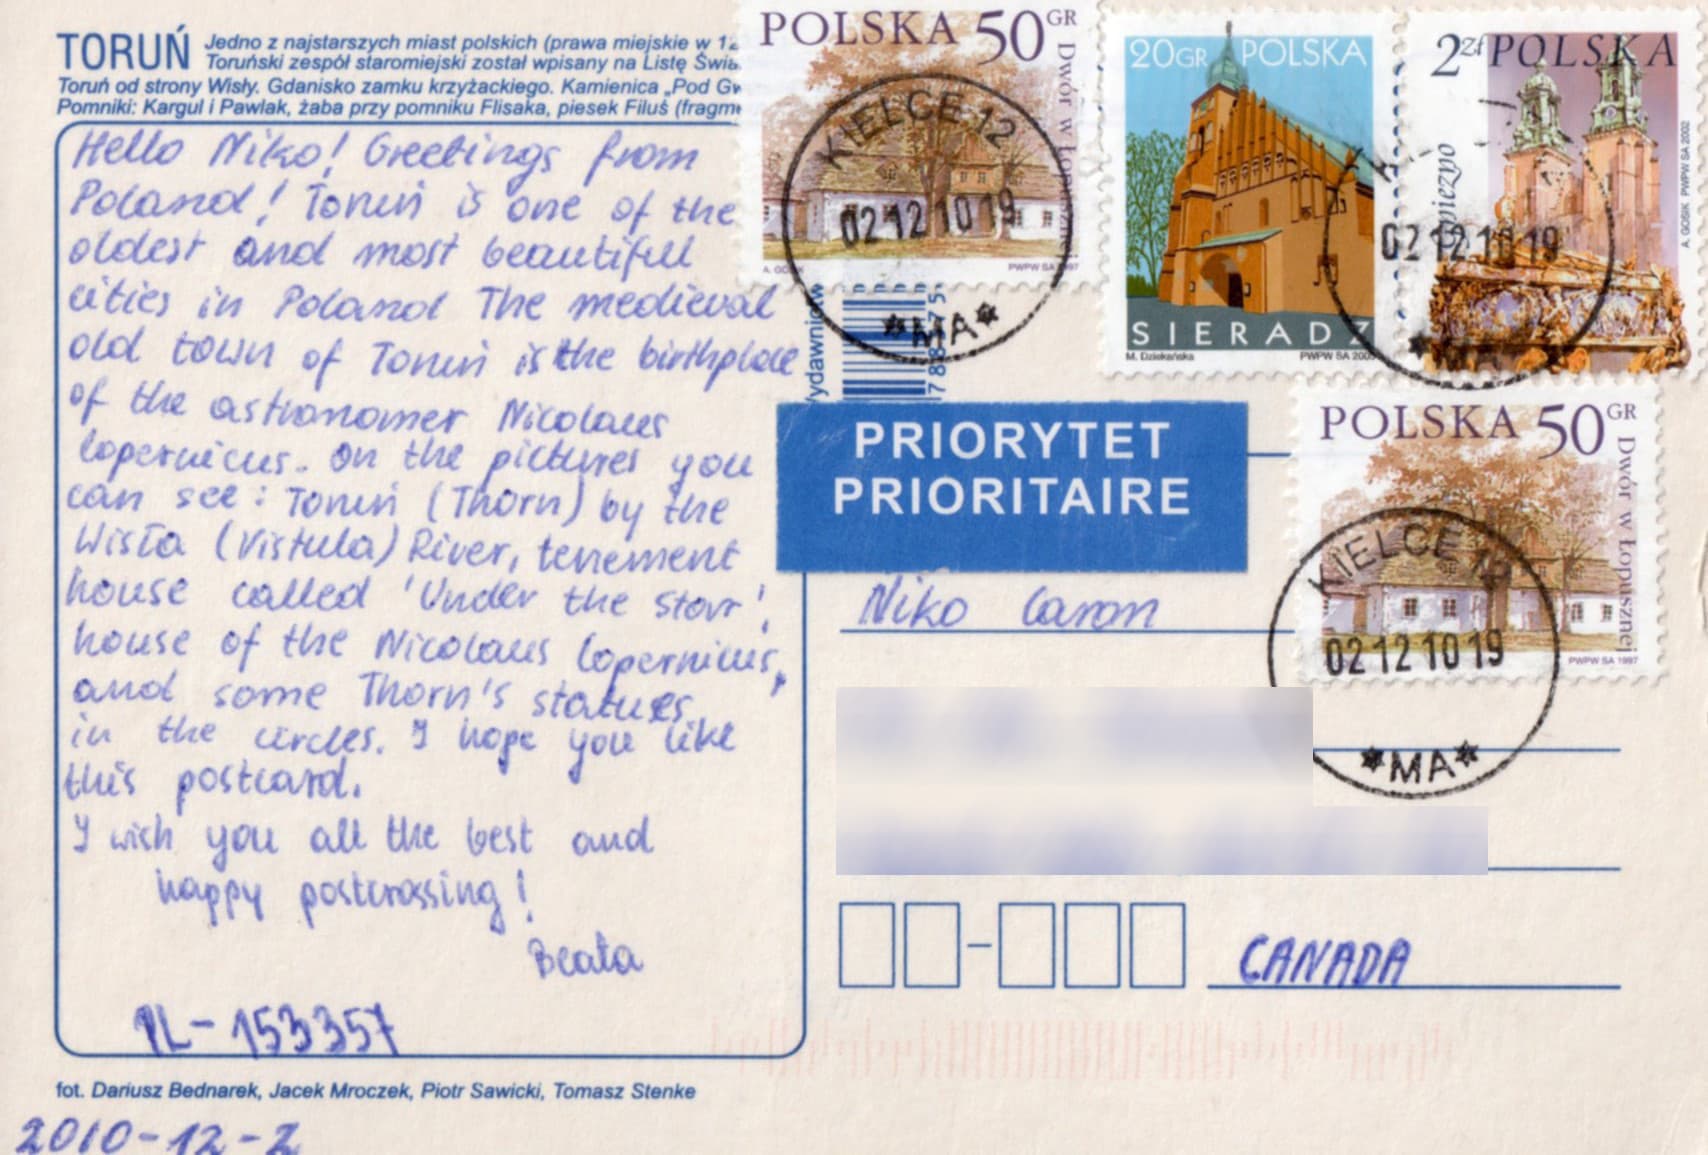 TORUŃ Jedno z najstarszych miast polskich (prawa miejskie w
Toruński zespół staromiejski został wpisany na Listę
Toruń od strony Wisły. Gdanisko zamku krzyżackiego. Kamienica „Pod
Pomniki: Kargul i Pawlak, żaba przy pomniku Flisaka, piesek Filuś
Hello Niko! Greetings from
Poland! Toruń is one of the
oldest and most beautifull
cities in Poland The medieval
old town of Toruń is the birthplace
of the astronomer Nicolaus
Copernicus. On the pictures you
can see: Toruń (Thorn) by the
Wisła (Vistula) River, tenement
house called 'Under the Starr',
house of the Nicolaus Copernicus,
and some Thorn's statues
in the circles. I hope you like
this postcard.
I wish you all the best and
happy postcrossing!
Beata
PL-153357
fot. Dariusz Bednarek, Jacek Mroczek, Piotr Sawicki, Tomasz Stenke
2010-12-2
POLSKA 50GR
Dwór w Łopusznej
PWPW SA 1997
KIELCE 12
02 12 10 19
*MA*
20GR POLSKA
SIERADZ
M. Dziekańska
2zł POLSKA
A. GOSIK PWPW SA 2002
02 12 10 19
PRIORYTET
PRIORITAIRE
POLSKA 50GR
Dwór w Łopusznej
PWPW SA 1997
KIELCE
02 12 10 19
*MA*
Niko Caron
CANADA